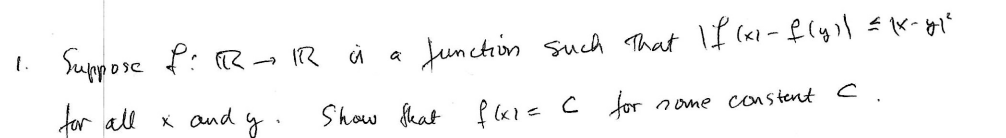 1. Suppose f: ℝ → ℝ is a function such that |f(x) - f(y)| ≤ |x-y|²
for all x and y. Show that f(x) = C for some constant C.